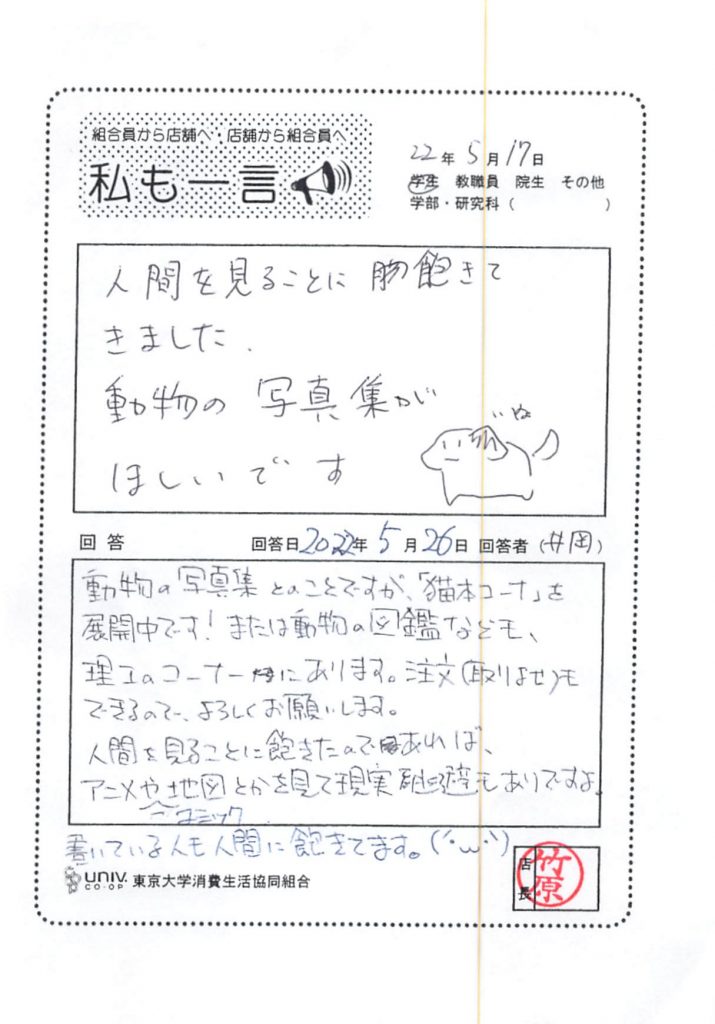 組合員から店舗へ・店舗から組合員へ
私も一言
22年5月17日
学生 教職員 院生 その他
学部・研究科( )
人間を見ることに飽きて
きました.
動物の写真集が
ほしいです
いぬ
回答 回答日2022年5月26日 回答者(井岡)
動物の写真集とのことですが、「猫本コーナー」を
展開中です!または動物の図鑑なども、
理工のコーナーにあります。注文(取りよせ)も
できるので、よろしくお願いします。
人間を見ることに飽きたのであれば、
アニメや地図とかを見て現実逃避もありですよ。
コミック
書いている人も人間に飽きてます。(´・ω・`)
UNIV.
CO-OP 東京大学消費生活協同組合
店長
竹原